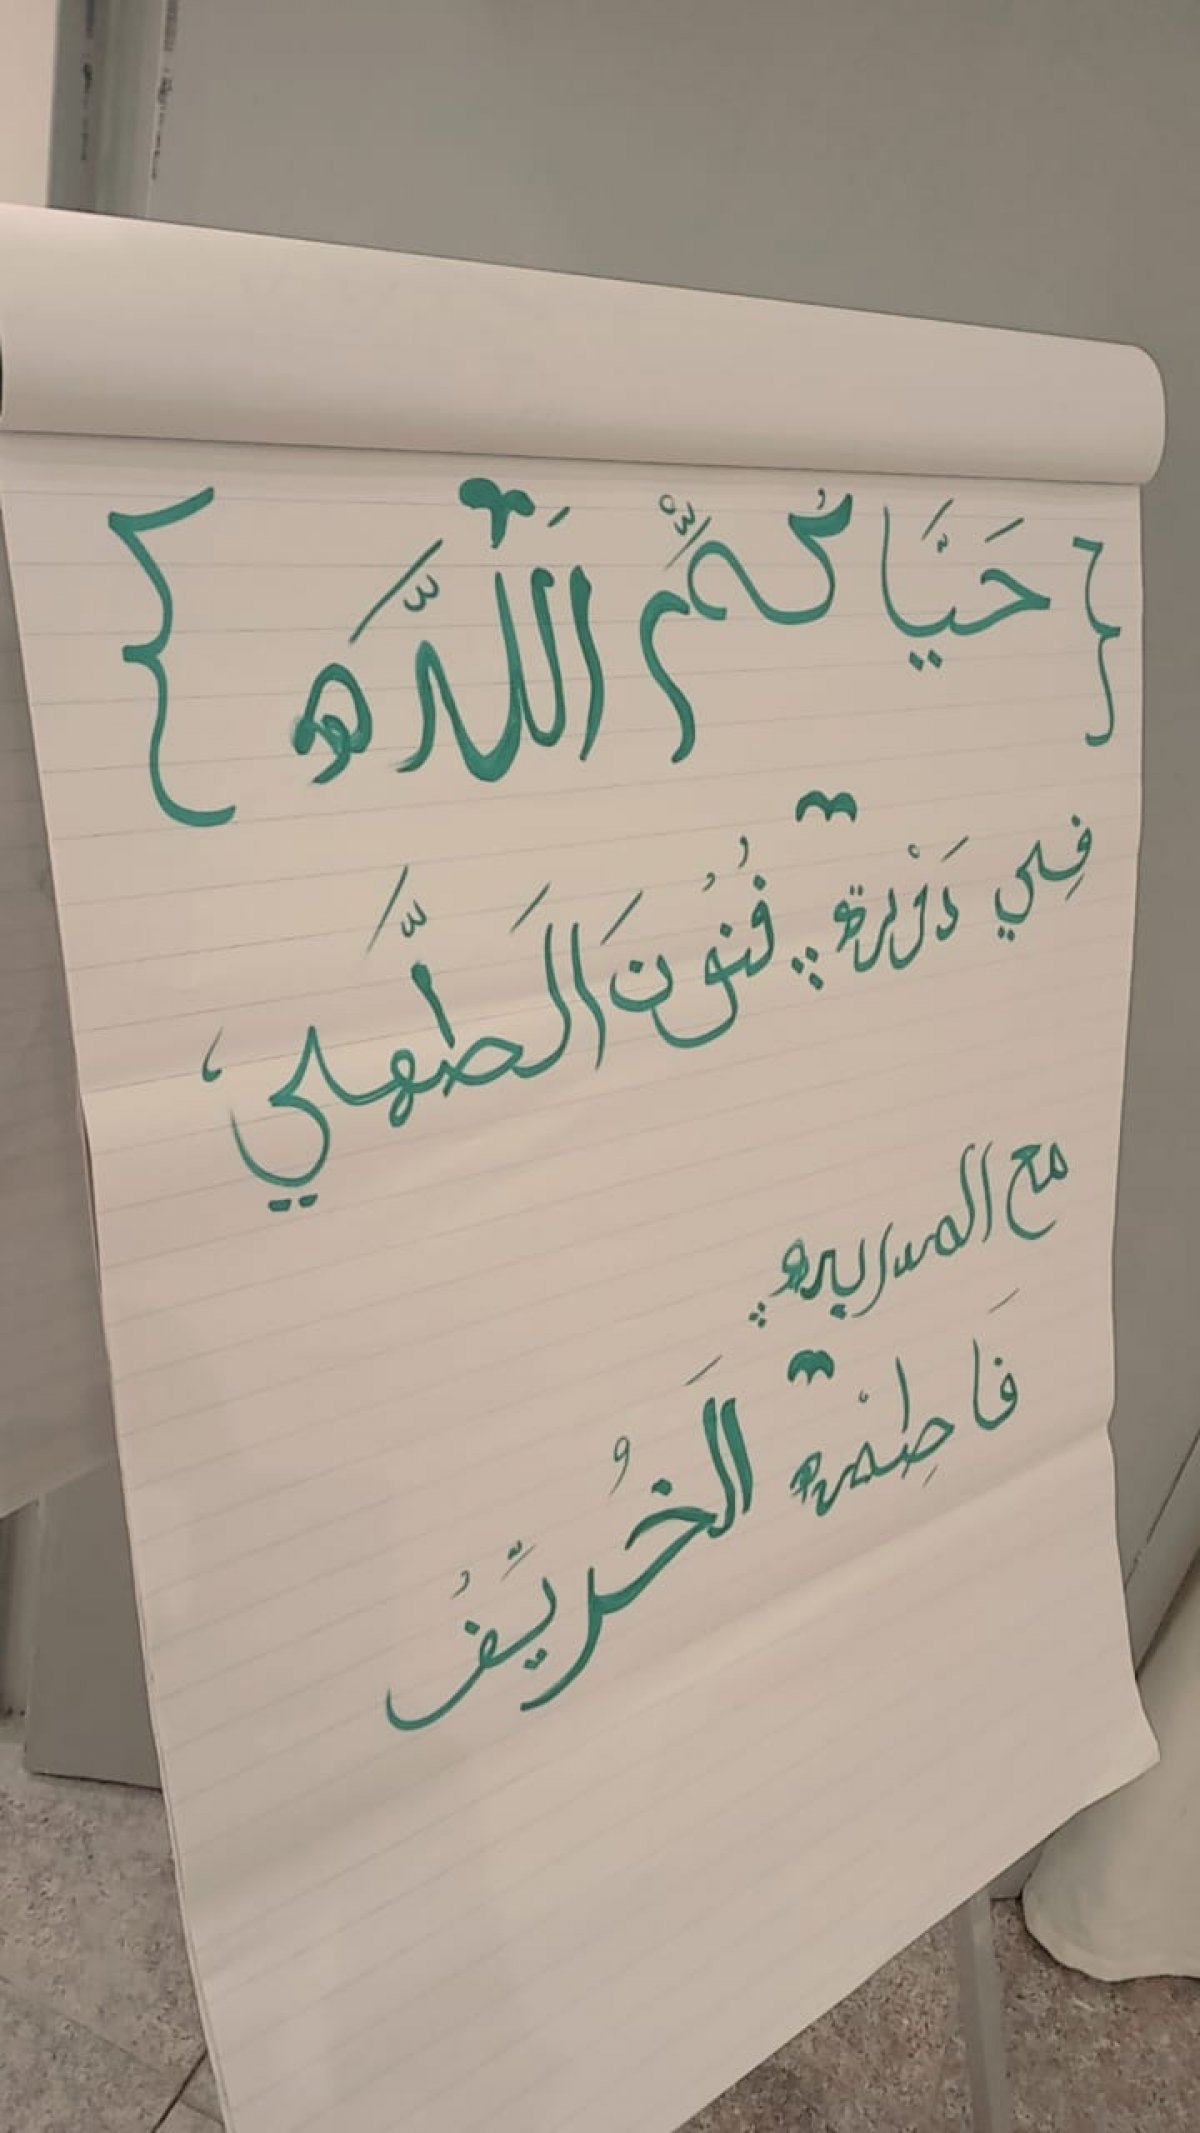 { حَيَّاكُمُ اَللَّه }
فِي دَوْرة فُنُونَ اَلطَّهي
مع المدربه
فَاطِمْه
اَلخُريِّفُ